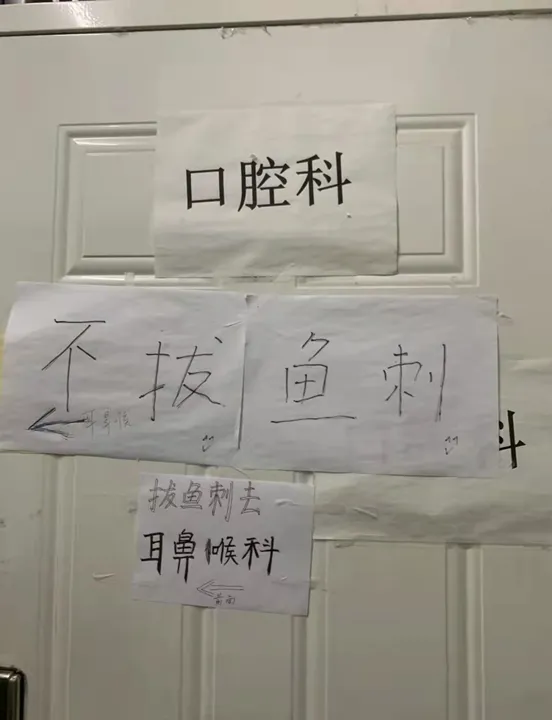 口腔科
不拔鱼刺
耳鼻喉
科
拔鱼刺去
耳鼻喉科
前面